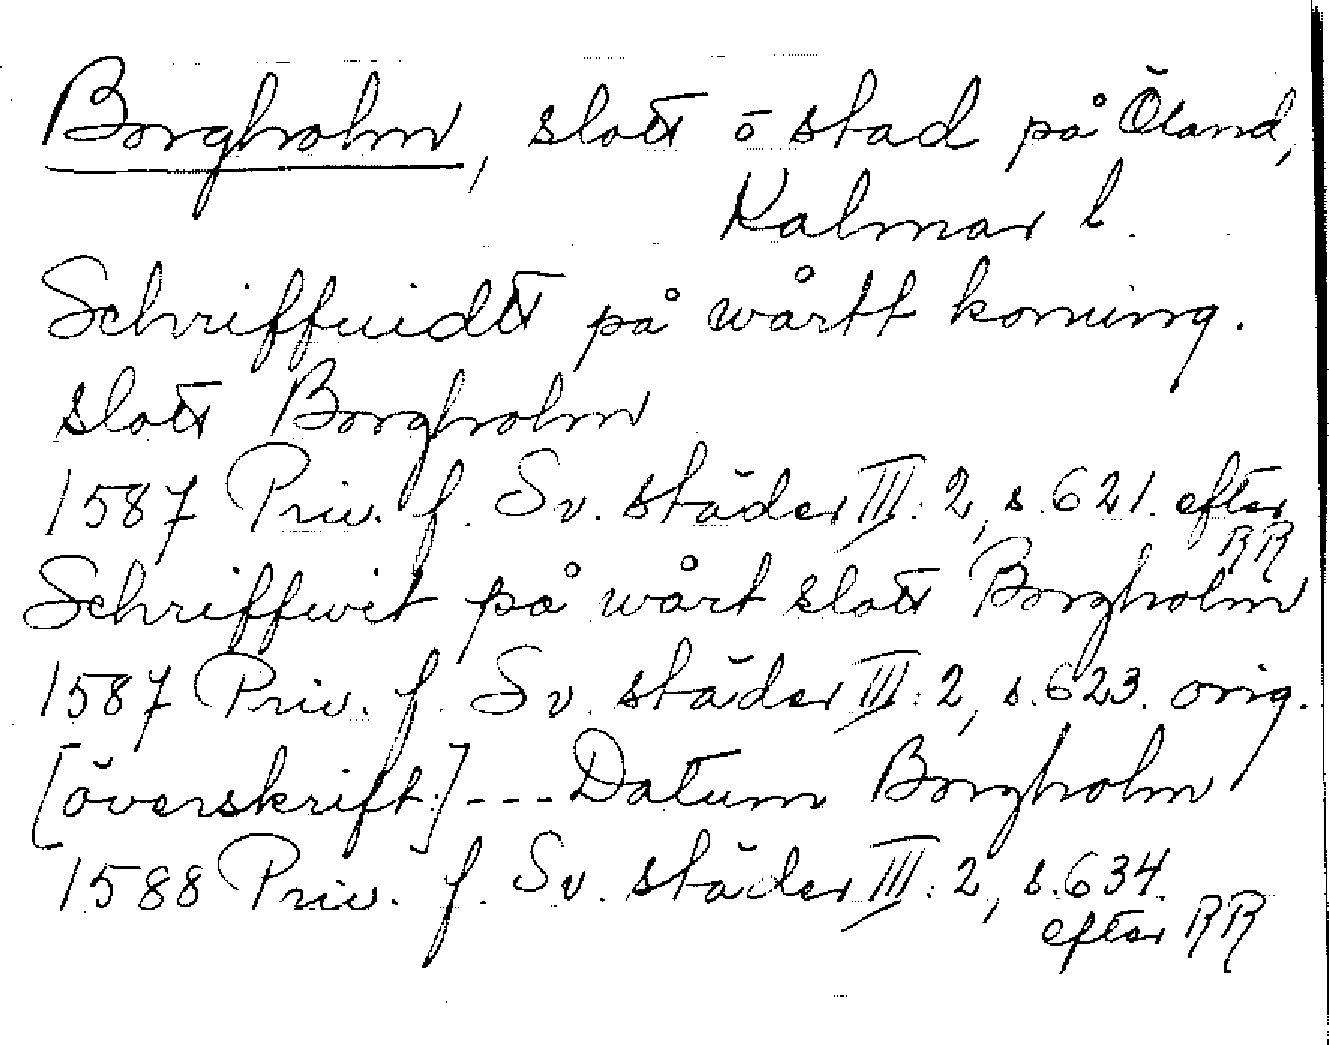 Borgholm, slott o stad på Öland,
Kalmar l.
Schriffuidtt på wårtt koning.
slott Borgholm
1587 Priv. f. Sv. städer III:2, s.621. efter
RR
Schriffwit på wårt slott Borgholm
1587 Priv. f. Sv. städer III:2, s.623. orig.
[överskrift:] --- Datum Borgholm
1588 Priv. f. Sv. städer III:2, s.634.
efter RR